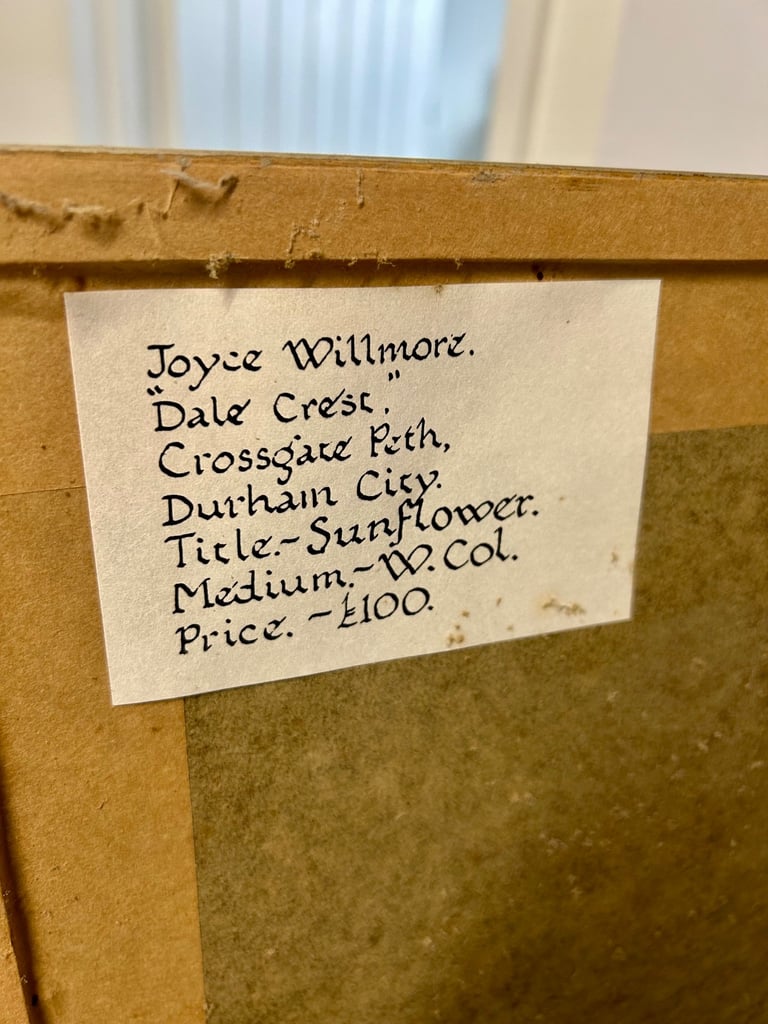 Joyce Willmore.
"Dale Crest."
Crossgate Peth,
Durham City.
Title.-Sunflower.
Medium.-W.Col.
Price.-£100.